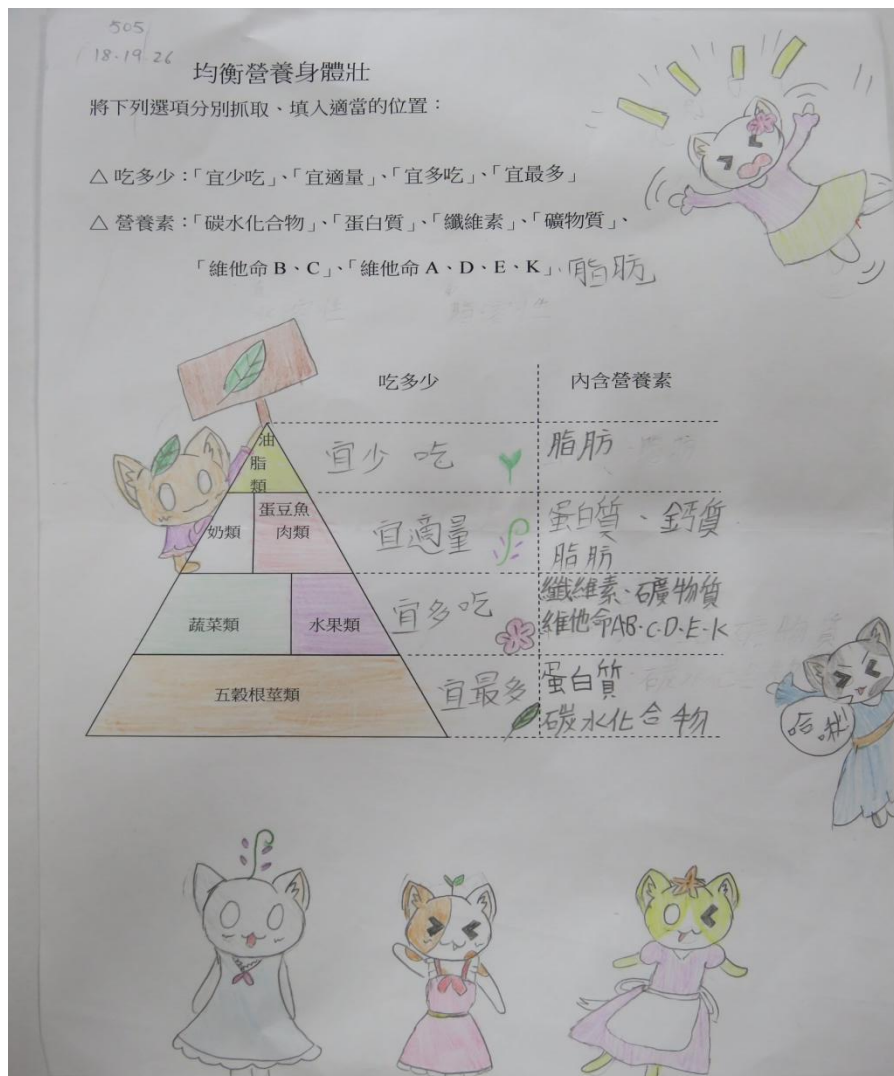 505
18.19.26
均衡營養身體壯
將下列選項分別抓取、填入適當的位置：
△ 吃多少：「宜少吃」、「宜適量」、「宜多吃」、「宜最多」
△ 營養素：「碳水化合物」、「蛋白質」、「纖維素」、「礦物質」、
「維他命 B、C」、「維他命 A、D、E、K」、脂肪
吃多少 內含營養素
油脂類 宜少吃 脂肪
奶類 蛋豆魚肉類 宜適量 蛋白質、鈣質
脂肪
蔬菜類 水果類 宜多吃 纖維素、礦物質
維他命AB.C.D.E.K
五穀根莖類 宜最多 蛋白質
碳水化合物
哈啾!